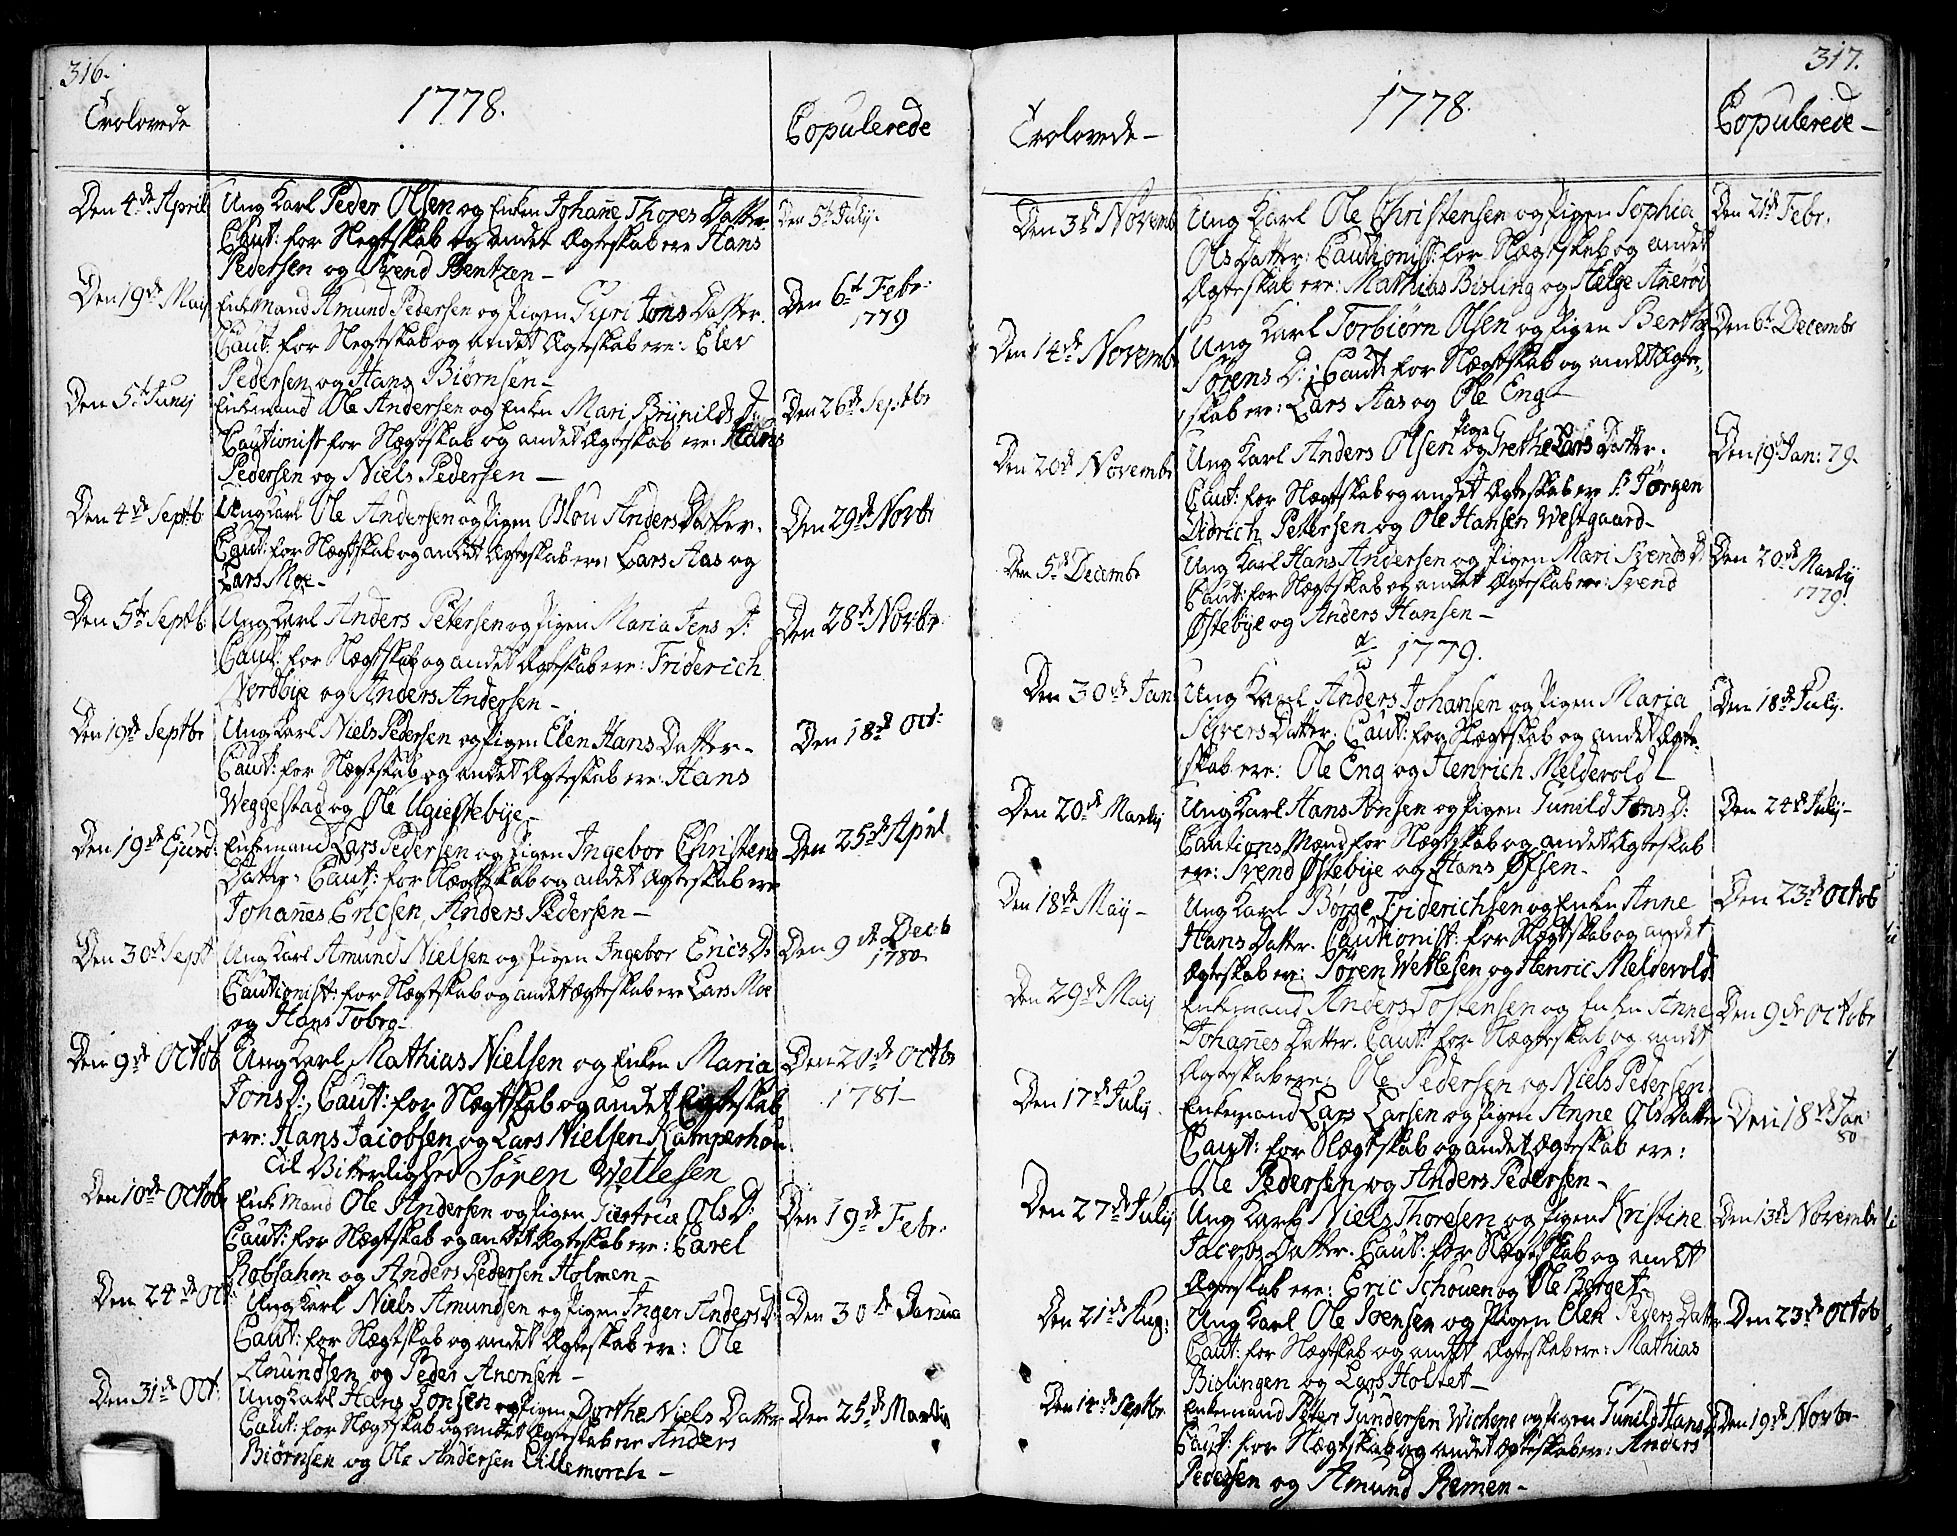 316.
Trolovede
1778.
Copulerede
Den 4de April
Ung Karl Peder Olsen og Enken Johane Thores Datter.
Caut: for Slegtskab og andet Ægteskab ere Hans
Pedersen og Svend Bentzen -
Den 5te July.
Den 19de May
Enkemand Amund Pedersen og Pigen Guri Jons Datter.
Caut: for Slegtskab og andet Ægteskab ere: Elev
Pedersen og Hans Biørnsen -
Den 6te Febr:
1779
Den 5te Junij
Enkemand Ole Andersen og Enken Mari Brÿnilds D:
Cautionist for Slægtskab og andet Ægteskab ere: Hans
Pedersen og Niels Pedersen -
Den 26de Septbr
Den 4de Septb
Ung Karl Ole Andersen og Pigen Oslou Anders Datter.
Caut: for Slægtskab og andet Ægteskab ere: Lars Aas og
Lars Moe -
Den 29de Novbr
Den 5te Septb
Ung Karl Anders Petersen og Pigen Maria Jens D:
Caut: for Slægtskab og andet Ægteskab ere: Friderich
Nordbye og Anders Andersen -
Den 28de Novbr
Den 19de Septbr
Ung Karl Niels Pedersen og Pigen Elen Hans Datter -
Caut: for Slægtskab og andet Ægteskab ere: Hans
Weggestad og Ole
Den 18de Oct:
Den 19de
Enkemand Lars Pedersen og Pigen Ingebor Christens
Datter. Caut: for Slægtskab og andet Ægteskab ere
Johanes Ericsen, Anders Pedersen -
Den 25de April
Den 30de Sept
Ung Karl Amund Nielsen og Pigen Ingebor Erics D:
Cautionist: for Slægtskab og andet Ægteskab ere Lars Moe
og Hans Toberg -
Den 9de Decb
1780
Den 9de Octob
Ung Karl Mathias Nielsen og Enken Maria
Jons D:, Caut: for Slægtskab og andet Ægteskab
ere: Hans Jacobsen og Lars Nielsen Kamperhou
Til Vitterlighed Søren Wetlesen
Den 20de Octbr
1781 -
Den 10de Octob
Enkemand Ole Andersen og Pigen Olsd:
Caut: for Slægtskab og andet Ægteskab ere: Carel
Robsahm og Anders Pedersen Holmen -
Den 19de Febr:
Den 24de Oct:
Ung Karl Niels Amundsen og Pigen Inger Anders D:
Caut: for Slægtskab og andet Ægteskab ere: Ole
Amundsen og Peder Anonsen -
Den 30de Janua
Den 31de Oct:
Ung Karl Hans Jonsen og Pigen Dorthe Niels Datter
Caut: for Slægtskab og andet Ægteskab ere Anders
Biørnsen og Ole Andersen Lillemorch -
Den 25de Martii
317.
Trolovede -
1778.
Copulerede -
Den 3de Novemb
Ung Karl Ole Christensen og Pigen Sophia
Ols Datter: Cautionist: for Slægtskab og andet
Ægteskab ere: Mathias Bisling og Helge Anerød
Den 21de Febr.
Den 14de Novemb
Ung Karl Torbiørn Olsen og Pigen Berthe
Sørens D:; Caut: for Slægtskab og andet Ægte-
skab ere: Lars Aas og Ole Eng -
Den 6te Decembr
Den 20de Novembr
Ung Karl Anders Olsen og Pigen Grethe Lars Datter.
Caut: for Slægtskab og andet Ægteskab ere Sr Jørgen
Didrich Petersen og Ole Hansen Westgaard -
Den 19de Jan: 79.
Den 5te Decembr
Ung Karl Hans Andersen og Pigen Mari Svends D:
Caut: for Slægtskab og andet Ægteskab ere: Svend
Østebye og Anders Hansen -
Den 20de Martij
1779.
1779.
Den 30de Jan
Ung Karl Anders Johansen og Pigen Maria
Sÿvers Datter. Caut: for Slægtskab og andet Ægte-
skab ere: Ole Eng og Henrich Meldevold -
Den 18de July.
Den 20de Martij
Ung Karl Hans Jonsen og Pigen Gunild Jons D:
Cautions Mænd for Slægtskab og andet Ægteskab
ere: Svend Østebye og Hans Olsen -
Den 24de July -
Den 18de Maÿ -
Ung Karl Børge Friderichsen og Enke Anne
Hans Datter. Cautionist: for Slægtskab og andet
Ægteskab ere: Søren Wetlesen og Henric Meldevold
Den 23de Octob
Den 29de Maij
Enkemand Anders Tostensen og Enken Anne
Johanes Datter. Caut: for Slægteskab og andet
Ægteskab ere: Ole Pedersen og Niels Pedersen
Den 9de Octobr
Den 17de Julij
Enkemand Lars Larsen og Pigen Anne Ols Datter
Caut: for Slægtskab og andet Ægteskab ere:
Ole Pedersen og Anders Pedersen -
Den 18de Jan
80
Den 27de Julij
Ung Karl Niels Thoresen og Pigen Kristine
Jacobs Datter. Caut: for Slægtskab og andet
Ægteskab ere: Eric Schouen og Ole Berget -
Den 13de Novembr
Den 21de Aug:
Ung Karl Ole Svensen og Pigen Elen Peders Datter
Caut: for Slægtskab og andet Ægteskab ere: Mathias
Bislingen og Lars Holstet -
Den 23de Octob
Den 14de Septbr
Enkemand Peter Gundersen Wichene og Pigen Gunild Hans D:
Caut: for Slægtskab og andet Ægteskab ere: Anders
Pedersen og Amund Remen -
Den 19de Novbr -